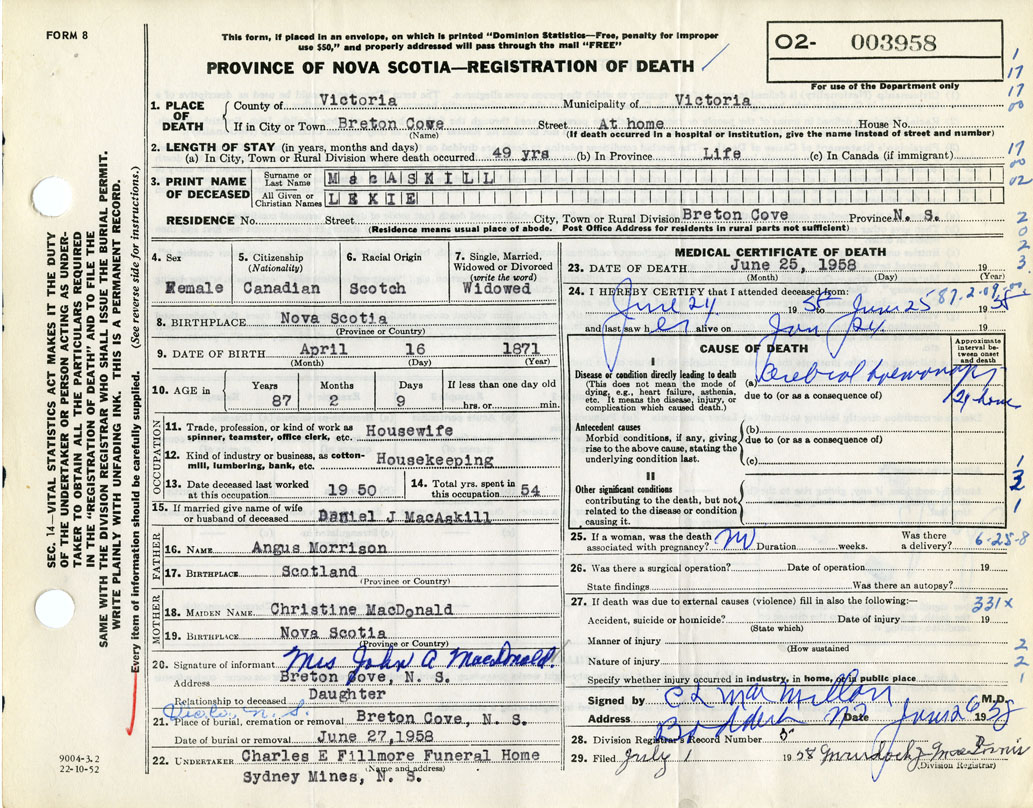 FORM 8
This form, if placed in an envelope, on which is printed "Dominion Statistics—Free, penalty for improper
use $50," and properly addressed will pass through the mail "FREE"
02- 003958
For use of the Department only
PROVINCE OF NOVA SCOTIA—REGISTRATION OF DEATH
SEC. 14—VITAL STATISTICS ACT MAKES IT THE DUTY
OF THE UNDERTAKER OR PERSON ACTING AS UNDER-
TAKER TO OBTAIN ALL THE PARTICULARS REQUIRED
IN THE "REGISTRATION OF DEATH" AND TO FILE THE
SAME WITH THE DIVISION REGISTRAR WHO SHALL ISSUE THE BURIAL PERMIT.
WRITE PLAINLY WITH UNFADING INK. THIS IS A PERMANENT RECORD.
Every item of information should be carefully supplied. (See reverse side for instructions.)
1. PLACE OF DEATH
County of Victoria Municipality of Victoria
If in City or Town Breton Cove Street At home House No.
(Name) (If death occurred in a hospital or institution, give the name instead of street and number)
2. LENGTH OF STAY (in years, months and days)
(a) In City, Town or Rural Division where death occurred 49 yrs (b) In Province Life (c) In Canada (if immigrant)
3. PRINT NAME OF DECEASED
Surname or Last Name MacASKILL
All Given or Christian Names LEXIE
RESIDENCE No. Street City, Town or Rural Division Breton Cove Province N. S.
(Residence means usual place of abode. Post Office Address for residents in rural parts not sufficient)
4. Sex Female
5. Citizenship (Nationality) Canadian
6. Racial Origin Scotch
7. Single, Married, Widowed or Divorced (write the word) Widowed
8. BIRTHPLACE Nova Scotia
(Province or Country)
9. DATE OF BIRTH April 16 1871
(Month) (Day) (Year)
10. AGE in Years 87 Months 2 Days 9 If less than one day old hrs. or min.
OCCUPATION
11. Trade, profession, or kind of work as spinner, teamster, office clerk, etc. Housewife
12. Kind of industry or business, as cotton-mill, lumbering, bank, etc. Housekeeping
13. Date deceased last worked at this occupation 19 50
14. Total yrs. spent in this occupation 54
15. If married give name of wife or husband of deceased Daniel J MacAskill
FATHER
16. NAME Angus Morrison
17. BIRTHPLACE Scotland
(Province or Country)
MOTHER
18. MAIDEN NAME Christine MacDonald
19. BIRTHPLACE Nova Scotia
(Province or Country)
20. Signature of informant Mrs John A MacDonald
Address Breton Cove, N. S.
Relationship to deceased Daughter
Victo, N. S.
21. Place of burial, cremation or removal Breton Cove, N. S.
Date of burial or removal June 27,1958
22. UNDERTAKER Charles E Fillmore Funeral Home
(Name and address)
Sydney Mines, N. S.
9004-3.2
22-10-52
MEDICAL CERTIFICATE OF DEATH
23. DATE OF DEATH June 25, 1958 19
(Month) (Day) (Year)
24. I HEREBY CERTIFY that I attended deceased from:
June 24 1958 to June 25 1958
87-2-09
and last saw her alive on 24 19
CAUSE OF DEATH
Approximate interval between onset and death
I
Disease or condition directly leading to death
(This does not mean the mode of dying, e.g., heart failure, asthenia, etc. It means the disease, injury, or complication which caused death.)
(a) Cerebral
due to (or as a consequence of)
24 hours
Antecedent causes
Morbid conditions, if any, giving rise to the above cause, stating the underlying condition last.
(b)
due to (or as a consequence of)
(c)
II
Other significant conditions
contributing to the death, but not related to the disease or condition causing it.
25. If a woman, was the death associated with pregnancy? No Duration weeks. Was there a delivery?
6-25-8
26. Was there a surgical operation? Date of operation 19
State findings Was there an autopsy?
27. If death was due to external causes (violence) fill in also the following:—
331x
Accident, suicide or homicide? Date of injury 19
(State which)
Manner of injury
(How sustained
Nature of injury
Specify whether injury occurred in industry, in home, or in public place
Signed by C L MacMillan M.D.
Address Baddeck NS Date June 26 1958
28. Division Registrar's Record Number
29. Filed July 1 1958 Murdoch J MacInnis
(Division Registrar)
1
17
17
00
17
00
02
2
0
2
3
1
3
2
1
2
2
1